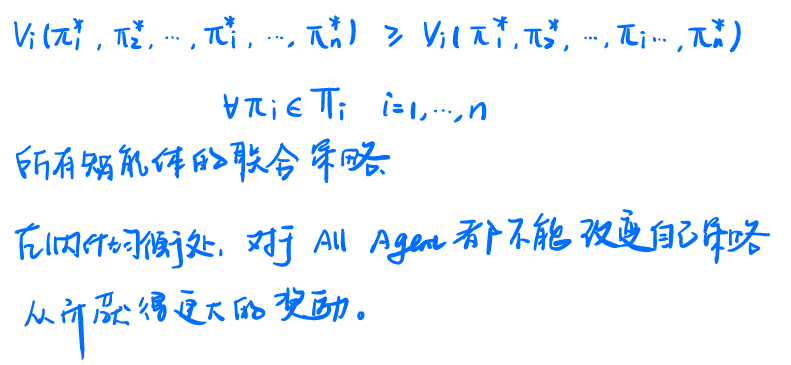 Vi(π₁*, π₂*, ..., πi*, ..., πn*) ≥ Vi(π₁*, π₂*, ..., πi ..., πn*)
∀πi ∈ Πi i=1,...,n
所有智能体的联合策略
在纳什均衡处，对于 All Agent 都不能改变自己策略
从而获得更大的奖励。